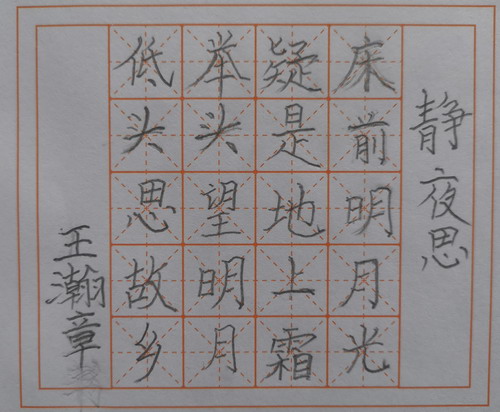 静夜思
床前明月光
疑是地上霜
举头望明月
低头思故乡
王瀚章